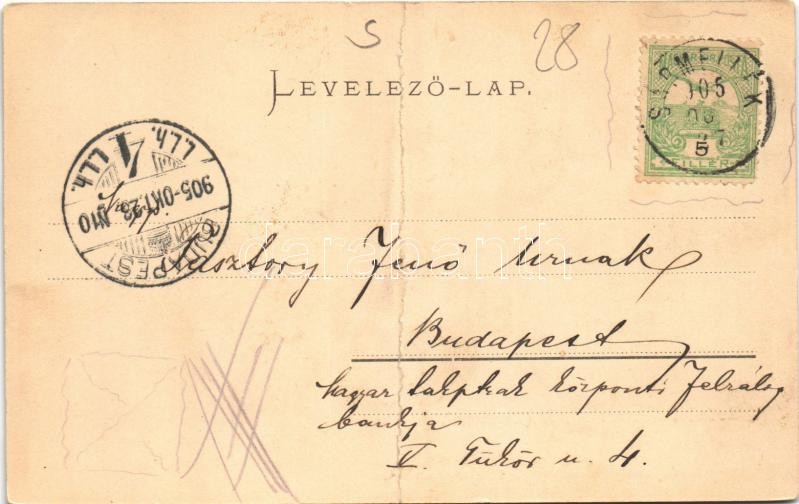 S
28
LEVELEZŐ-LAP.
SÁRMELLÉK
905
5
FILLÉR
BUDAPEST
905-OKT. 28. N10
4
Pásztory Jenő Urnak
Budapest
Magyar takptrak központi Jelzálog
bankja
V. Tükör u. 4.
darabanth.com